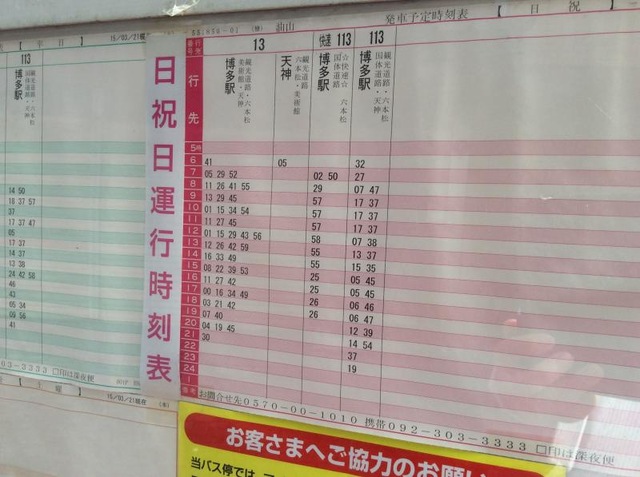 日 祝 日 運 行 時 刻 表
油山
発車予定時刻表
【 日 祝 】
行先番号
13
快速 113
113
行先
博多駅
観光道路・六本松
美術館・天神
天神
観光道路
六本松・美術館
博多駅
☆快速☆ 六本松
国体道路
博多駅
観光道路・六本松
国体道路・天神
5時
6 41 05 32
7 05 29 52 02 50 27
8 11 26 41 55 29 07 47
9 13 29 45 57 17 37
10 01 15 34 54 57 17 37
11 11 27 45 57 17 37
12 01 15 29 43 56 58 07 38
13 12 26 42 59 55 13 37
14 16 33 49 55 15 35
15 08 22 39 53 25 05 45
16 11 27 42 25 05 45
17 00 16 34 49 26 06 46
18 03 21 42 26 06 47
19 07 40 12 39
20 04 19 45 14 54
21 30 37
22 19
23
24
1
お問合せ先0570-00-1010 携帯092-303-3333 □印は深夜便
【 平 日 】
15/03/21
113
博多駅
14 50
18 37 57
37
17 37 47
05
17 37
14 37
13 38
24 42 58
46
43
05 34
09 56
41
03-3333 □印は深夜便
【 土 曜 】
15/03/21
お客さまへご協力のお願い
当バス停では